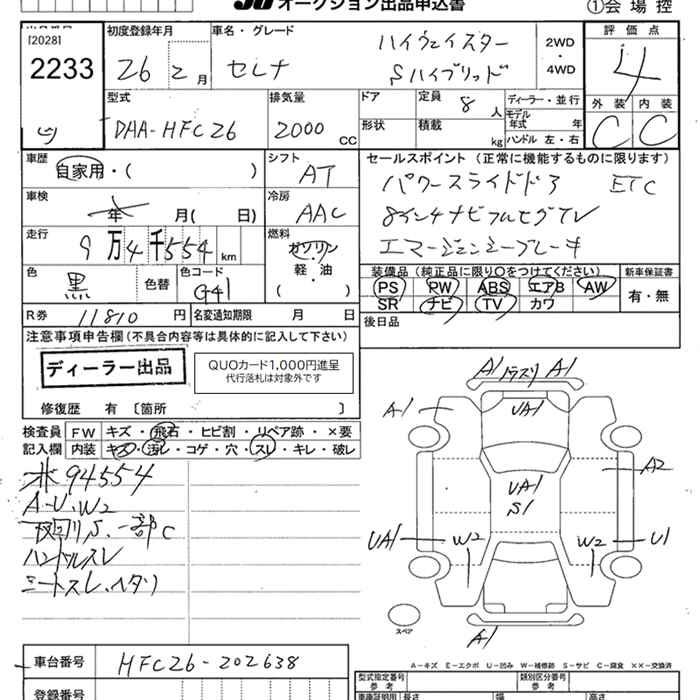 JU オークション出品申込書 ①会場控
[2028]
2233
初度登録年月
26 2 月
車名・グレード
セレナ
ハイウェイスター
Sハイブリッド
2WD
・
4WD
評価点
4
外装 内装
C C
型式
DAA-HFC26
排気量
2000 CC
ドア
形状
定員 8 人
積載 kg
ディーラー・並行
モデル年式 年
ハンドル 左・右
車歴
自家用・( )
シフト
AT
車検
年 月( 日)
冷房
AAC
走行
9万4千554 km
燃料
ガソリン
軽・油
( )
色
黒
色替
色コード
G41
R券 11810 円
名変通知期限 月 日
セールスポイント(正常に機能するものに限ります)
パワースライドドア ETC
8インチナビフルセグTV
エマージェンシーブレーキ
装備品(純正品に限り○をつけてください)
PS PW ABS エアB AW
SR ナビ TV カワ
新車保証書
有・無
後日品
注意事項申告欄(不具合内容等は具体的に記入して下さい)
ディーラー出品
QUOカード1,000円進呈
代行落札は対象外です
修復歴 有 〔箇所 〕
検査員 FW キズ・飛石・ヒビ割・リペア跡・×要
記入欄 内装 キズ・汚レ・コゲ・穴・スレ・キレ・破レ
米 94554
A-U.W2
下回りS.一部C
ハンドルスレ
シートスレ.ヘタリ
A1 トラスリ A1
A1
UA1
A2
UA1
S1
UA1
W2
W2
U1
A1
スペア
A-キズ E-エクボ U-凹み W-補修跡 S-サビ C-腐食 ××-交換済
車台番号 HFC26-202638
登録番号
型式指定番号
参考
類別区分番号
参考
車両証明用 長さ 幅 高さ